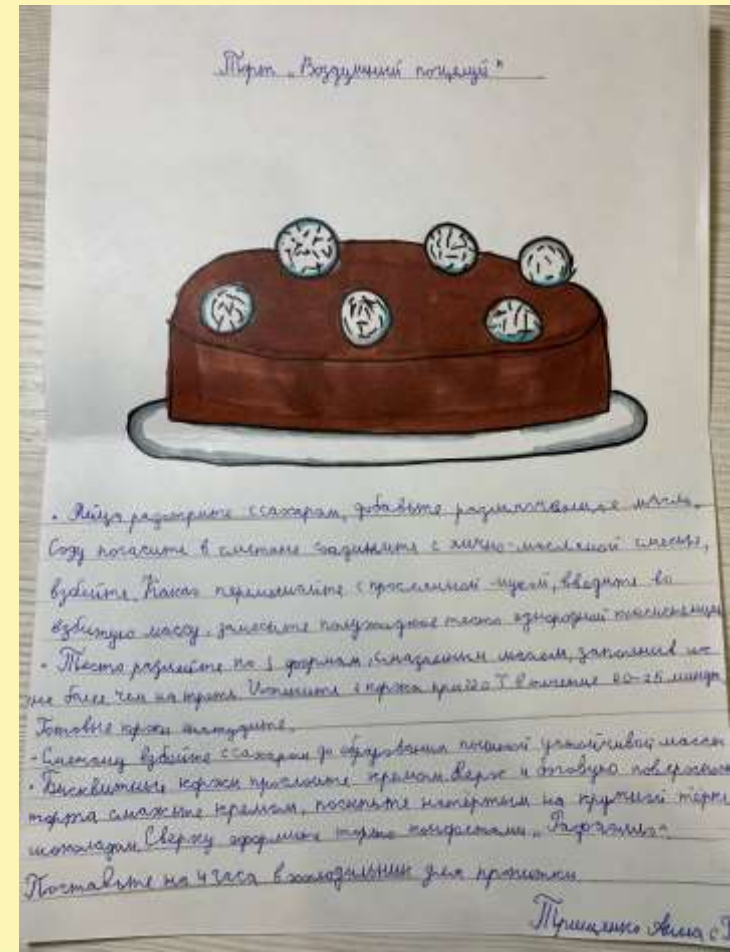 Торт „Воздушный поцелуй"
• Яйца разотрите с сахаром, добавьте размягчённое масло.
Соду погасите в сметане соедините с яично-масляной смесью,
взбейте. Какао перемешайте с просеянной мукой, введите во
взбитую массу, замесите полужидкое тесто однородной консистенции
• Тесто разлейте по 3 формам, смазанным маслом, заполнив их
не более чем на треть. Испеките 3 коржа при 220 Т в течение 20-25 минут
Готовые коржи остудите.
- Сметану взбейте с сахаром до образования пышной устойчивой массы
• Бисквитные коржи прослоите кремом. Верх и боковую поверхность
торта смажьте кремом, посыпьте натёртым на крупной тёрке
шоколадом. Сверху оформите торт конфетами „Рафаэлло"
Поставьте на 4 часа в холодильник для пропитки
Анна с